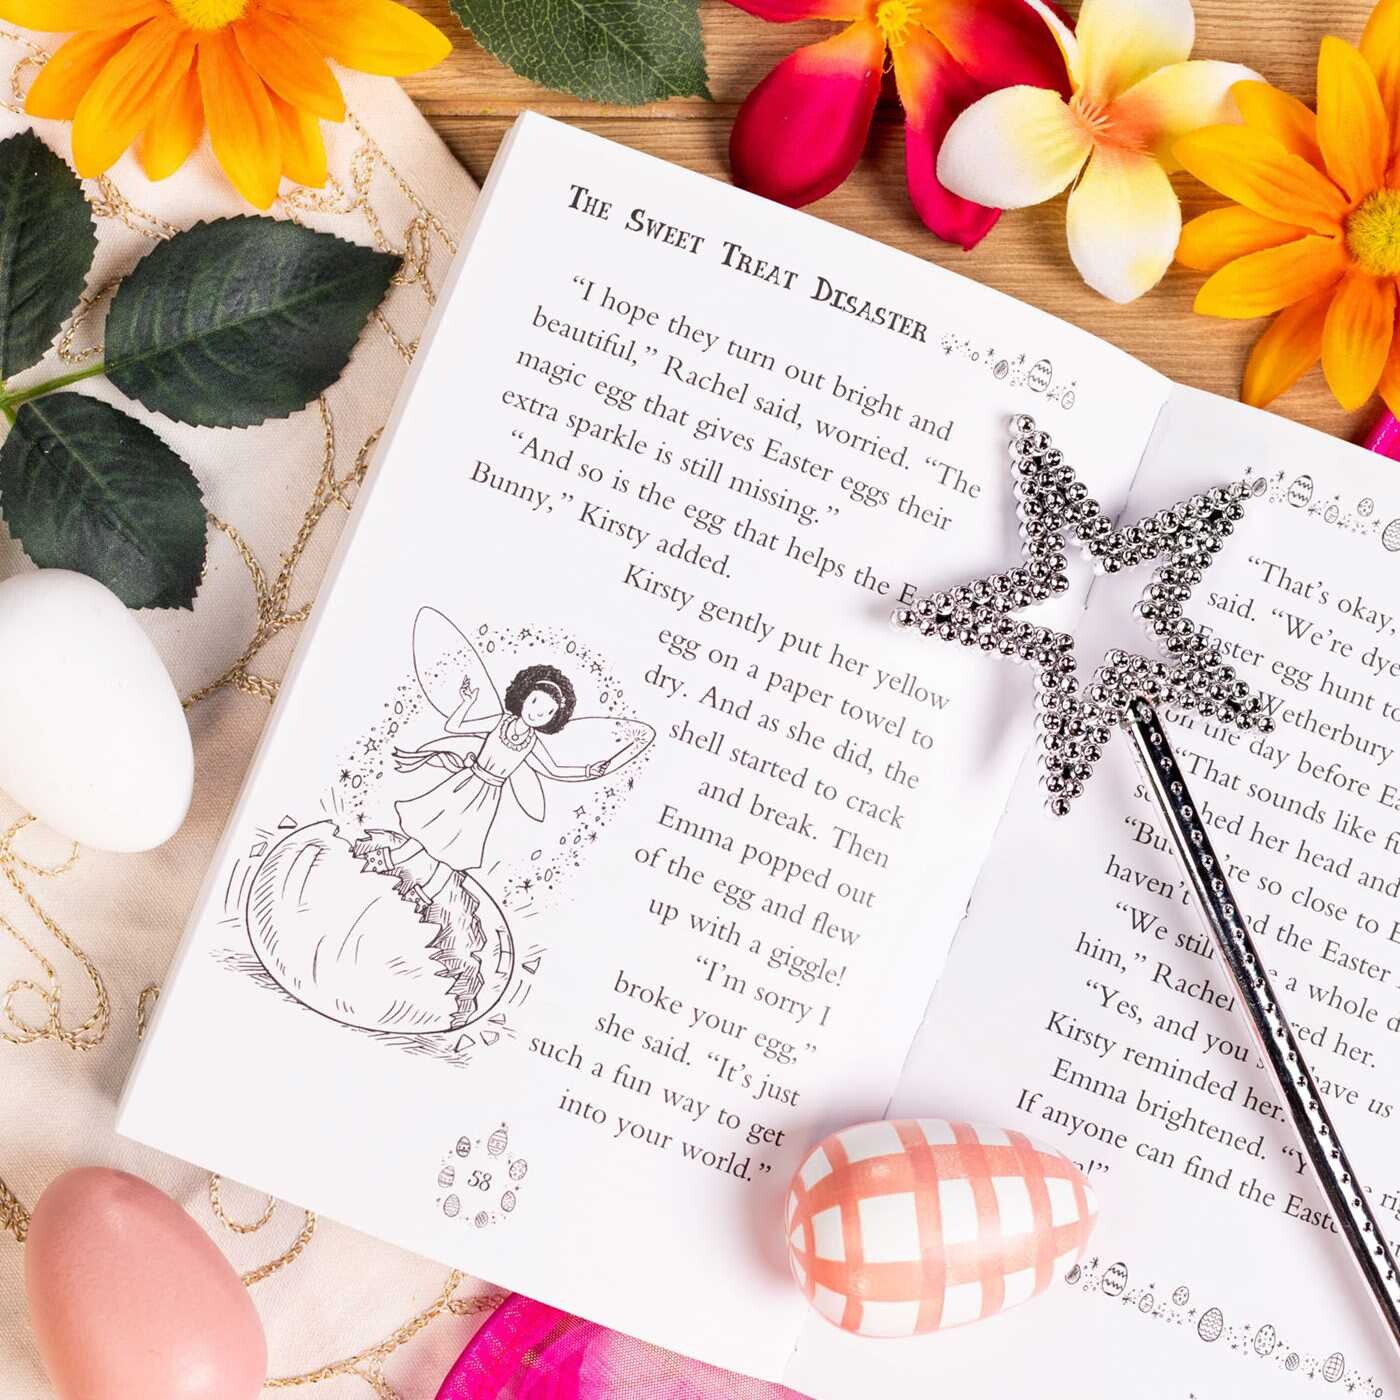 The Sweet Treat Disaster
“I hope they turn out bright and
beautiful,” Rachel said, worried. “The
magic egg that gives Easter eggs their
extra sparkle is still missing.”
“And so is the egg that helps the
Bunny,” Kirsty added.
Kirsty gently put her yellow
egg on a paper towel to
dry. And as she did, the
shell started to crack
and break. Then
Emma popped out
of the egg and flew
up with a giggle!
“I’m sorry I
broke your egg,”
she said. “It’s just
such a fun way to get
into your world.”
58
“That’s okay,
said. “We’re dye
Easter egg hunt to
Wetherbury
on the day before
“That sounds like
her head and
so close to
haven’t the Easter
“We still a whole
him,” Rachel her.
“Yes, and you have us
Kirsty reminded her.
Emma brightened.
If anyone can find the